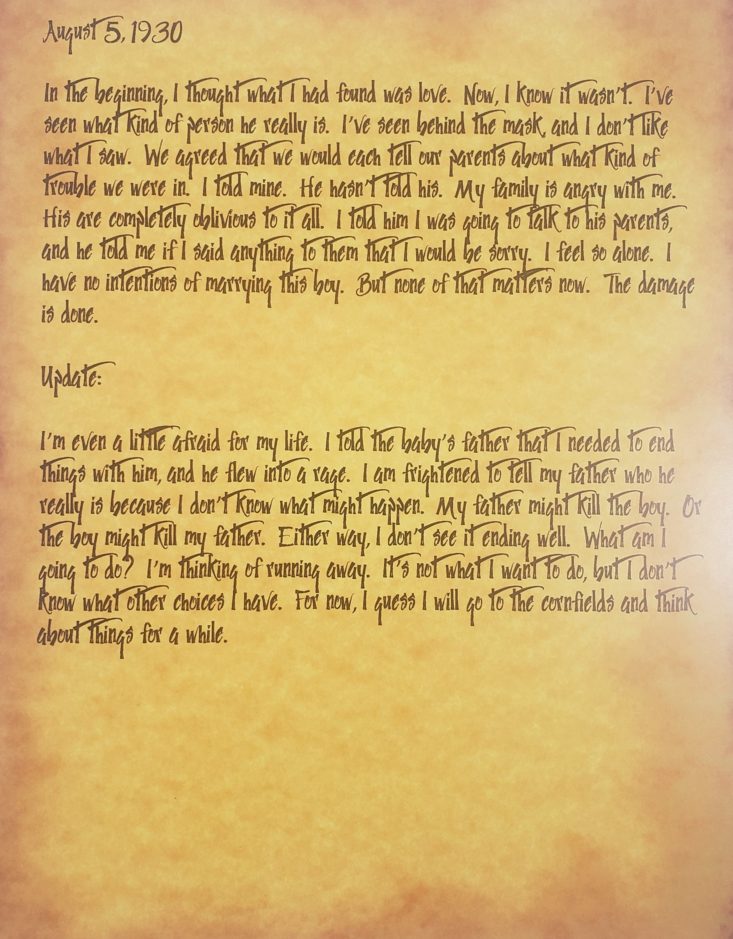 August 5, 1930
In the beginning, I thought what I had found was love. Now, I know it wasn't. I've
seen what kind of person he really is. I've seen behind the mask, and I don't like
what I saw. We agreed that we would each tell our parents about what kind of
trouble we were in. I told mine. He hasn't told his. My family is angry with me.
His are completely oblivious to it all. I told him I was going to talk to his parents,
and he told me if I said anything to them that I would be sorry. I feel so alone. I
have no intentions of marrying this boy. But none of that matters now. The damage
is done.
Update:
I'm even a little afraid for my life. I told the baby's father that I needed to end
things with him, and he flew into a rage. I am frightened to tell my father who he
really is because I don't know what might happen. My father might kill the boy. Or
the boy might kill my father. Either way, I don't see it ending well. What am I
going to do? I'm thinking of running away. It's not what I want to do, but I don't
know what other choices I have. For now, I guess I will go to the cornfields and think
about things for a while.